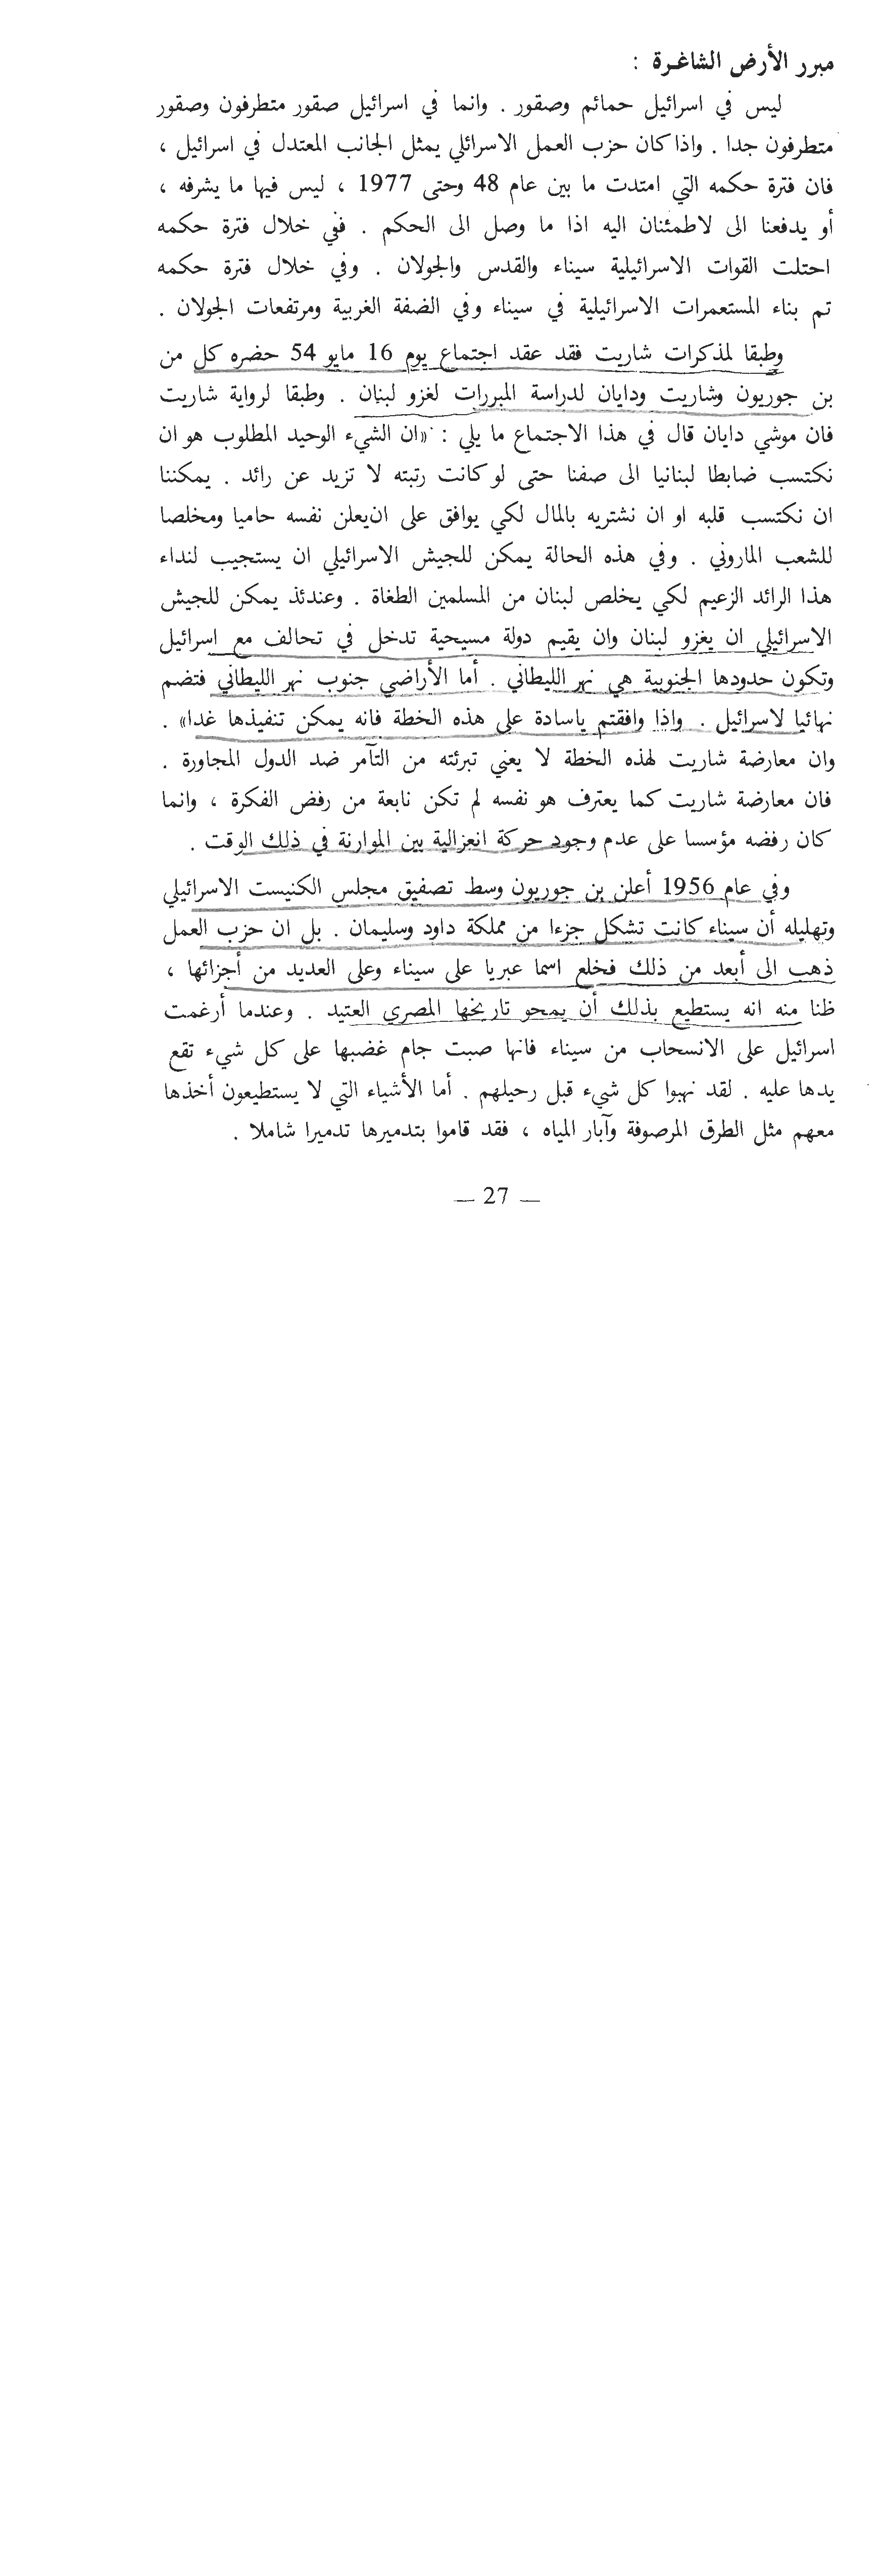 مبرر الأرض الشاغرة :
ليس في اسرائيل حمائم وصقور . وانما في اسرائيل صقور متطرفون وصقور
متطرفون جدا . واذا كان حزب العمل الاسرائلي يمثل الجانب المعتدل في اسرائيل ،
فان فترة حكمه التي امتدت ما بين عام 48 وحتى 1977 ، ليس فيها ما يشرفه ،
أو يدفعنا الى لاطمئنان اليه اذا ما وصل الى الحكم . ففي خلال فترة حكمه
احتلت القوات الاسرائيلية سيناء والقدس والجولان . وفي خلال فترة حكمه
تم بناء المستعمرات الاسرائيلية في سيناء وفي الضفة الغربية ومرتفعات الجولان .
وطبقا لمذكرات شاريت فقد عقد اجتماع يوم 16 مايو 54 حضره كل من
بن جوريون وشاريت ودايان لدراسة المبررات لغزو لبنان . وطبقا لرواية شاريت
فان موشي دايان قال في هذا الاجتماع ما يلي : «ان الشيء الوحيد المطلوب هو ان
نكتسب ضابطا لبنانيا الى صفنا حتى لو كانت رتبته لا تزيد عن رائد . يمكننا
ان نكتسب قلبه او ان نشتريه بالمال لكي يوافق على ان‌يعلن نفسه حاميا ومخلصا
للشعب الماروني . وفي هذه الحالة يمكن للجيش الاسرائيلي ان يستجيب لنداء
هذا الرائد الزعيم لكي يخلص لبنان من المسلمين الطغاة . وعندئذ يمكن للجيش
الاسرائيلي ان يغزو لبنان وان يقيم دولة مسيحية تدخل في تحالف مع اسرائيل
وتكون حدودها الجنوبية هي نهر الليطاني . أما الأراضي جنوب نهر الليطاني فتضم
نهائيا لاسرائيل . واذا وافقتم ياسادة على هذه الخطة فانه يمكن تنفيذها غدا» .
وان معارضة شاريت لهذه الخطة لا يعني تبرئته من التآمر ضد الدول المجاورة .
فان معارضة شاريت كما يعترف هو نفسه لم تكن نابعة من رفض الفكرة ، وانما
كان رفضه مؤسسا على عدم وجود حركة انعزالية بين الموارنة في ذلك الوقت .
وفي عام 1956 أعلن بن جوريون وسط تصفيق مجلس الكنيست الاسرائيلي
وتهليله أن سيناء كانت تشكل جزءا من مملكة داود وسليمان . بل ان حزب العمل
ذهب الى أبعد من ذلك فخلع اسما عبريا على سيناء وعلى العديد من أجزائها ،
ظنا منه انه يستطيع بذلك أن يمحو تاريخها المصري العتيد . وعندما أرغمت
اسرائيل على الانسحاب من سيناء فانها صبت جام غضبها على كل شيء تقع
يدها عليه . لقد نهبوا كل شيء قبل رحيلهم . أما الأشياء التي لا يستطيعون أخذها
معهم مثل الطرق المرصوفة وآبار المياه ، فقد قاموا بتدميرها تدميرا شاملا .
— 27 —